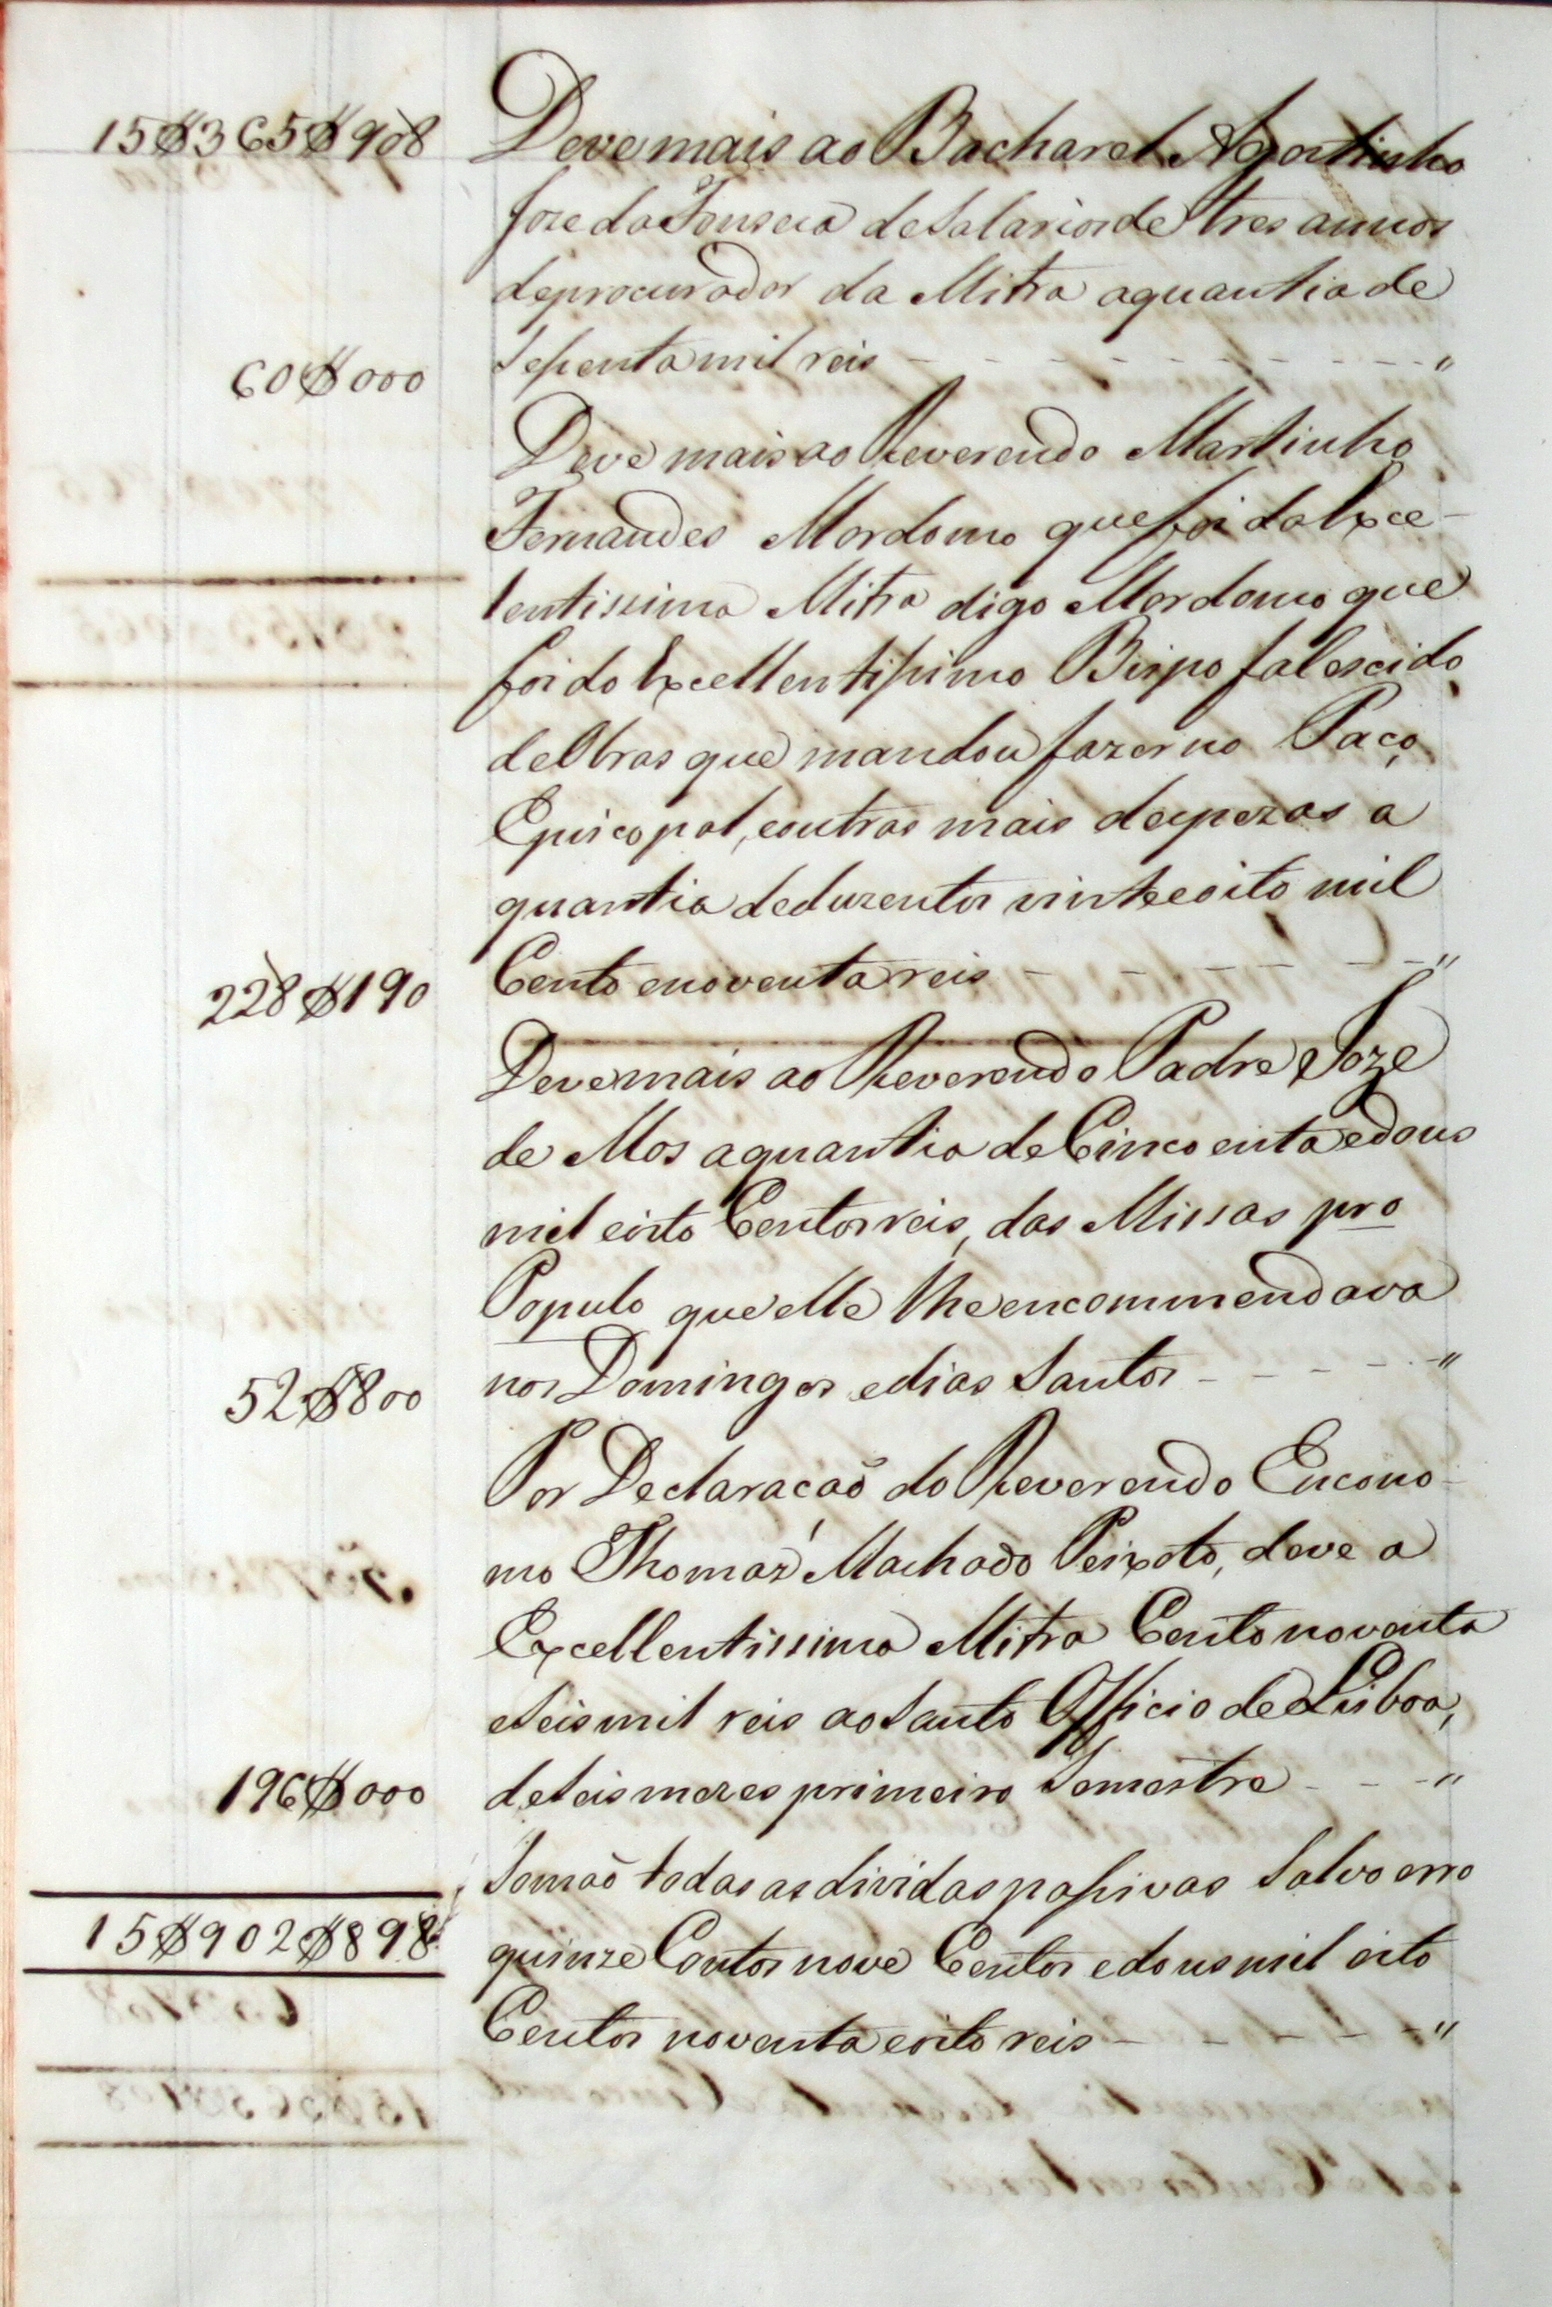 15$365$908 Deve mais ao Bacharel Agostinho
Joze da Fonseca de Salarios de tres annos
de procurador da Mitra a quantia de
60$000 Sessenta mil reis - - - - - - - - - - - - "
Deve mais ao Reverendo Martinho
Fernandes Mordomo que foi da Exce-
lentissima Mitra digo Mordomo que
foi do Excellentissimo Bispo falescido
de Obras que mandou fazer no Paço
Episcopal, e outras mais despezas a
quantia de duzentos vinte e oito mil
228$190 Cento e noventa reis - - - - - - - "
Deve mais ao Reverendo Padre Joze
de Mos a quantia de Cincoenta e dous
mil eoito Centos reis, das Missas pro
Populo que elle lhe encommendava
52$800 nos Domingos e dias Santos - - - - - "
Por Declaracaõ do Reverendo Encono-
mo Thomaz Machado Peixoto, deve a
Excellentissima Mitra Cento noventa
e Seis mil reis ao Santo Officio de Lisboa,
196$000 de Seis mezes primeiro Semestre - - - "
Somaõ todas as dividas passivas Salvo erro
15$902$898 quinze Contos nove Centos e dous mil oito
Centos noventa e oito reis - - - - - - "